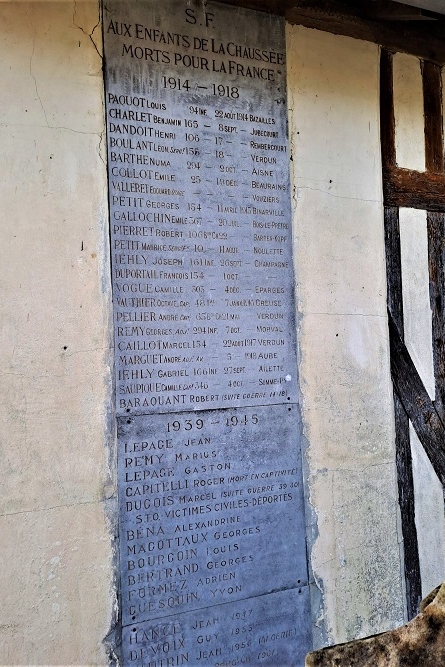 S.F
AUX ENFANTS DE LA CHAUSSÉE
MORTS POUR LA FRANCE
1914 - 1918
PAQUOT LOUIS 94 INF 22 AOUT 1914 BAZAILLES
CHARLET BENJAMIN 165 - 8 SEPT. JUBECOURT
DANDOIT HENRI 106 - 17 - REMBERCOURT
BOULANT LÉON 18 - VERDUN
BARTHE NUMA 294 - 2 OCT. AISNE
COLLOT EMILE 25 - 19 DÉC. BEAURAINS
VALLERET EDOUARD VOUZIERS
PETIT GEORGES 154 - 11 AVRIL 1915 BINARVILLE
GALLOCHIN EMILE 367 - 20 JUIL. BOIS-LE-PRÊTRE
PIERRE ROBERT 106
PETIT MAURICE NOULETTE
IEHLY JOSEPH 161 INF 26 SEPT - CHAMPAGNE
DUPORTAIL FRANÇOIS 154 - 1 OCT. -
VOGUE CAMILLE 303 - 4 DÉC. EPARGES
VAUTHIER OCTAVE 7 JANV. CREUSE
PELLIER ANDRÉ MAI VERDUN
REMY GEORGES 294 INF. 7 OCT. MORVAL
CAILLOT MARCEL 154 - 22 AOUT 1917 VERDUN
MARGUET ANDRÉ 5 - 1918 AUBE
IEHLY GABRIEL 166 INF 27 SEPT - AILETTE
SAUPIQUE CAMILLE 346 4 OCT SOMME-PY
BARAQUANT ROBERT (SUITE GUERRE 14-18)
1939 - 1945
LEPAGE JEAN
REMY MARIUS
LEPAGE GASTON
CAPITELLI ROGER (MORT EN CAPTIVITÉ)
DUCOIS MARCEL (SUITE GUERRE 39-40)
STO. VICTIMES CIVILES-DÉPORTÉS
BÉNA ALEXANDRINE
MAGOTTAUX GEORGES
BOURGOIN LOUIS
BERTRAND GEORGES
FORMEZ ADRIEN
GUESQUIN YVON
JEAN 1947
GUY 1953
JEAN 1956 (ALGÉRIE)